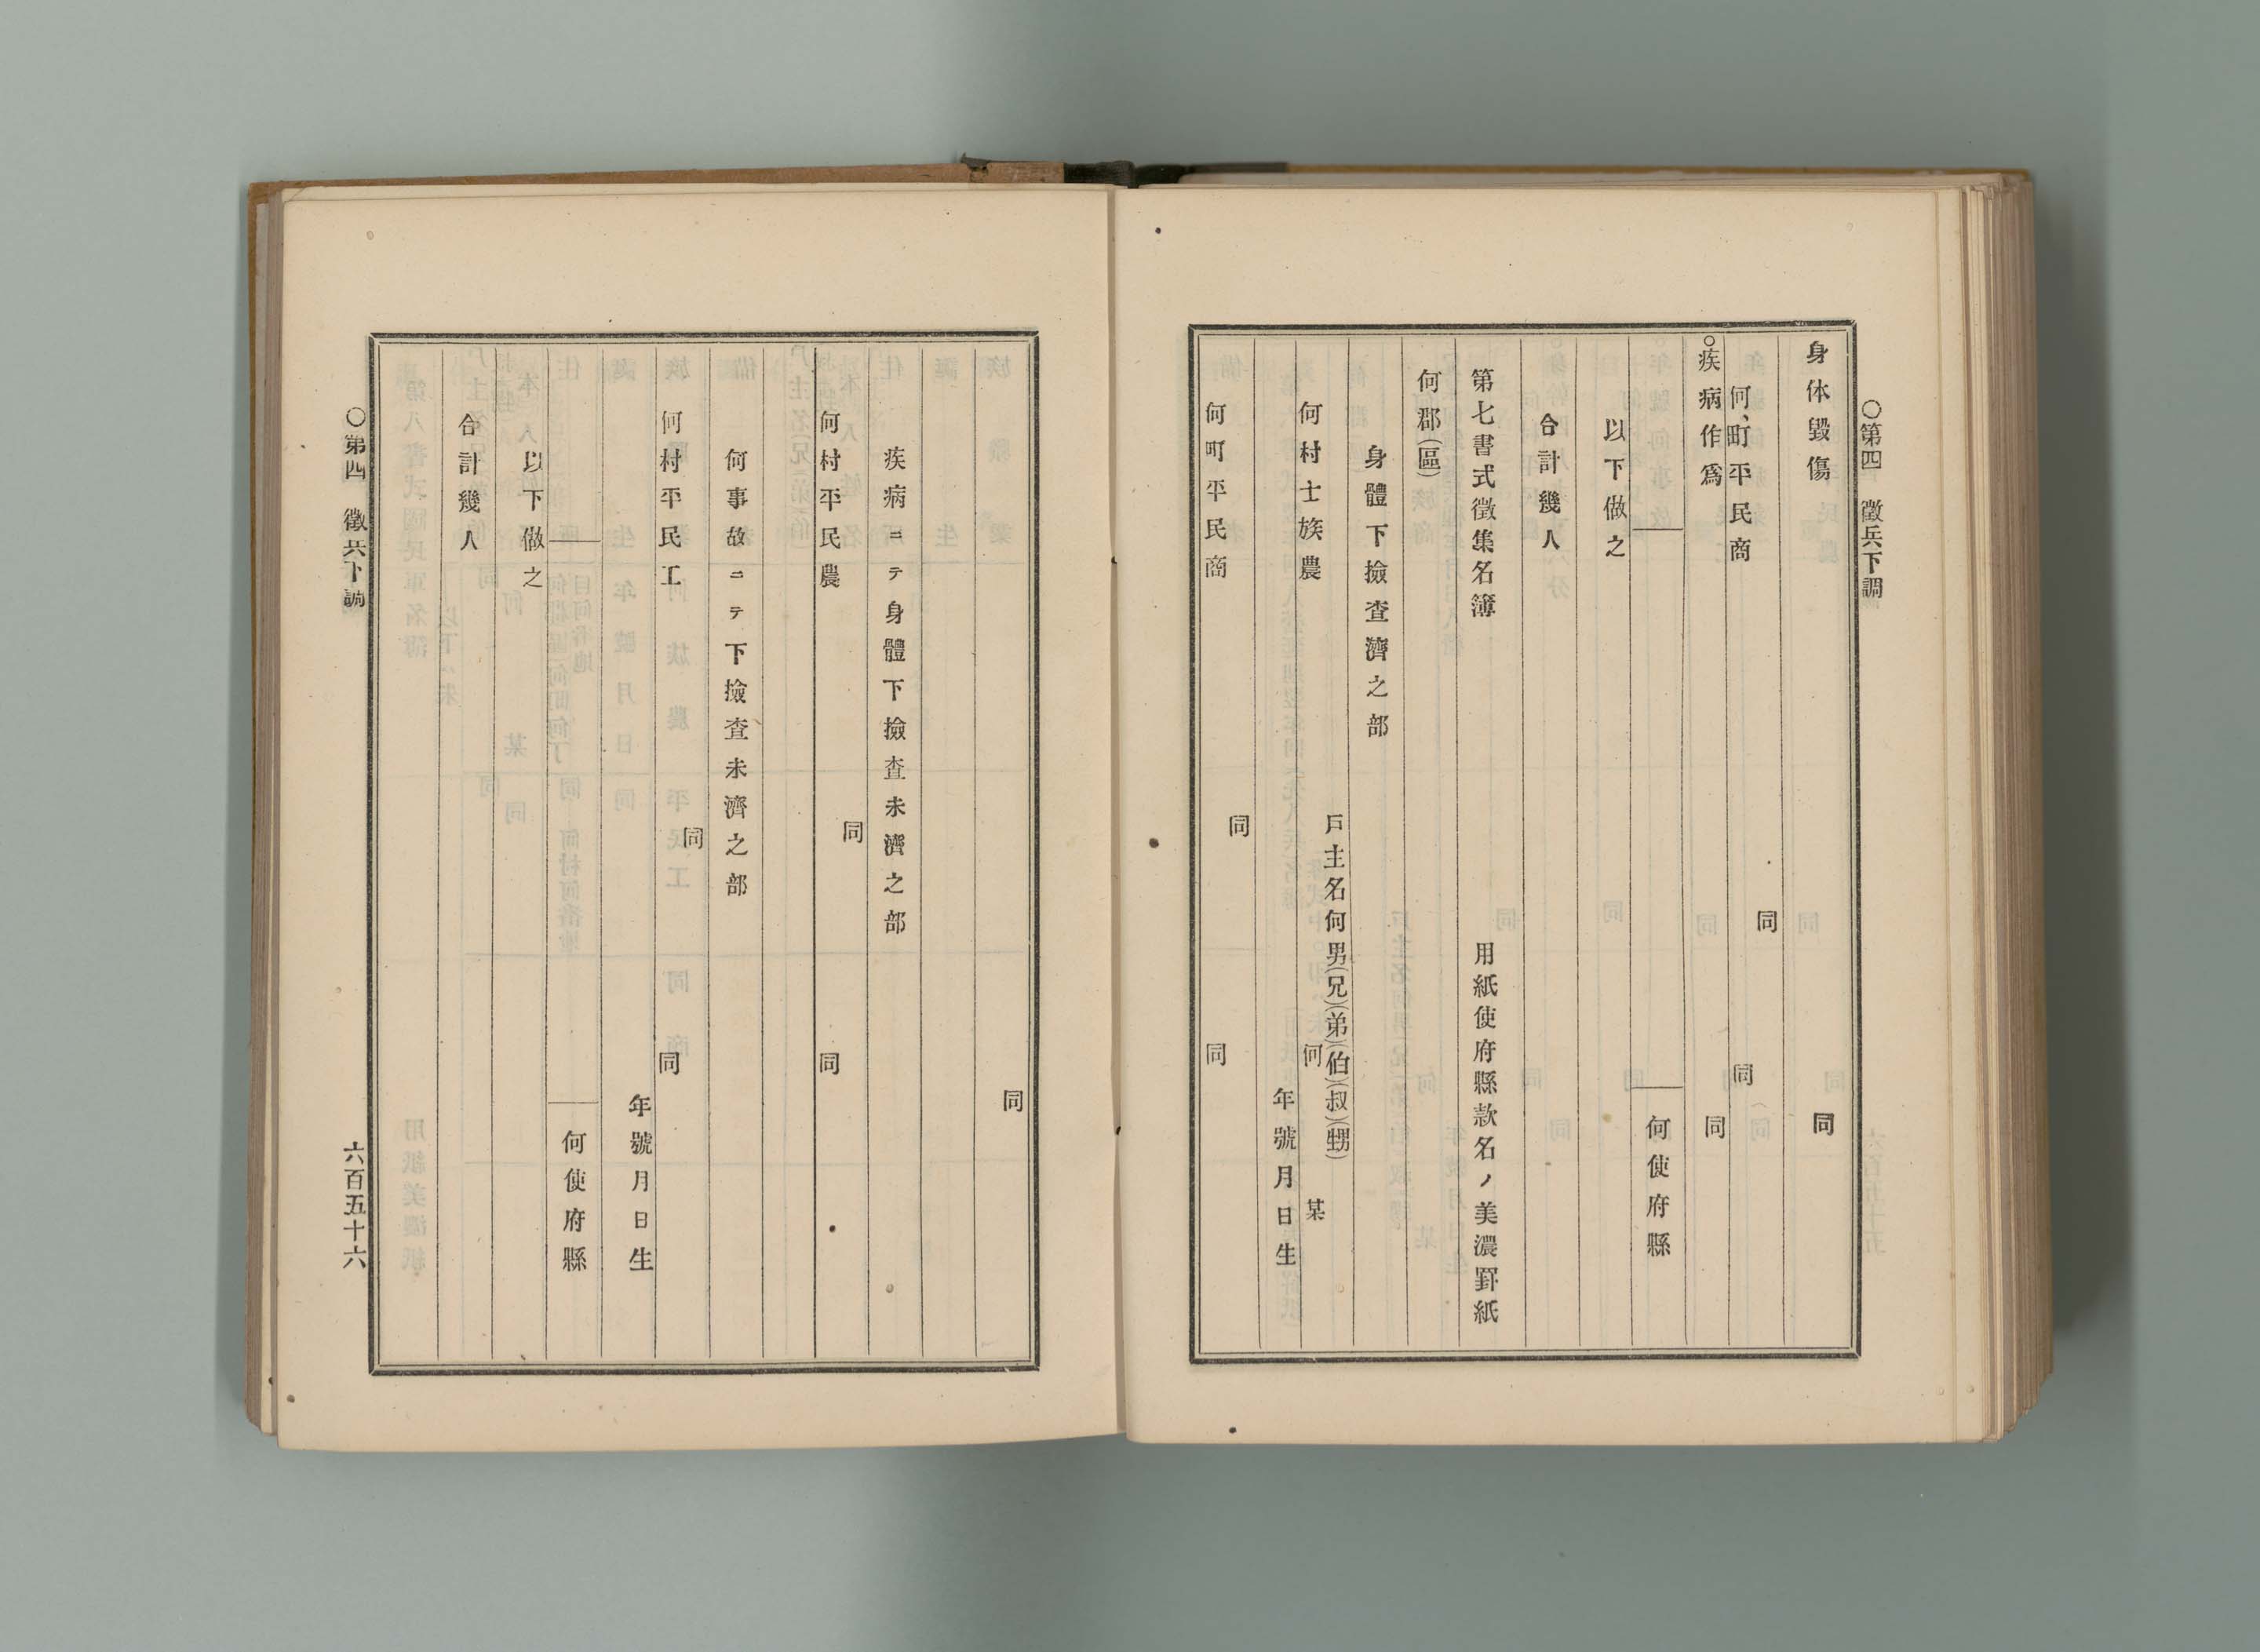 ○第四　徵兵下調
身体毀傷　同
同
何町平民商　同
○疾病作爲　同
何使府縣
以下做之
合計幾人
第七書式徵集名簿　用紙使府縣款名ノ美濃罫紙
何郡(區)
身體下撿査濟之部
戶主名何男(兄)(弟)(伯)(叔)(甥)
何村士族農　何　某
年號月日生
同
何町平民商　同
同
疾病ニテ身體下撿査未濟之部
同
何村平民農　同
何事故ニテ下撿査未濟之部
同
何村平民工　同
年號月日生
何使府縣
以下做之
合計幾人
○第四　徵兵下調　六百五十六